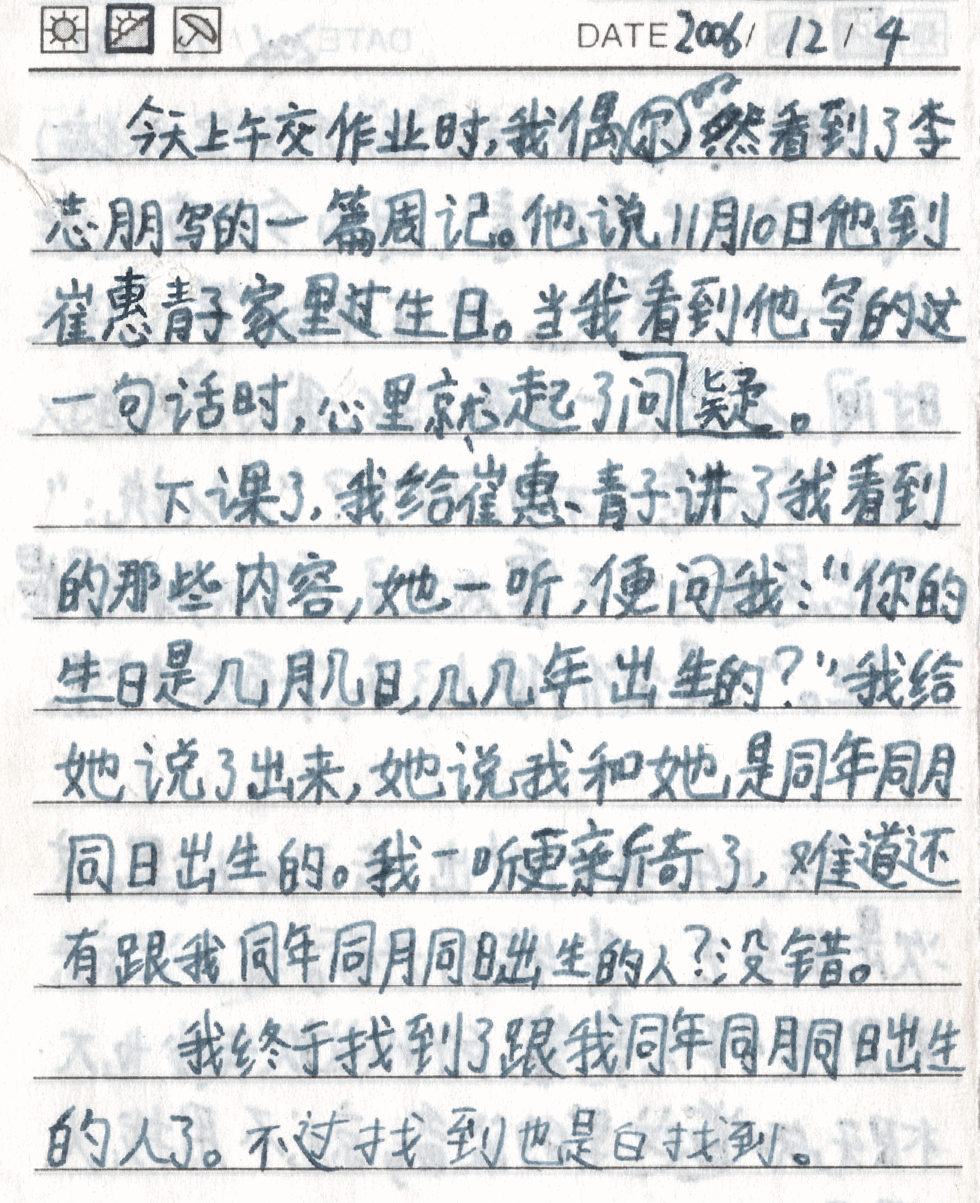 DATE 2006/ 12 / 4
今天上午交作业时,我偶尔然看到了李
志朋写的一篇周记。他说11月10日他到
崔惠青子家里过生日。当我看到他写的这
一句话时,心里就起了问疑。
下课了,我给崔惠青子讲了我看到
的那些内容,她一听,便问我:“你的
生日是几月几日,几几年出生的?”我给
她说了出来,她说我和她是同年同月
同日出生的。我一听更亲斤奇了,难道还
有跟我同年同月同日出生的人?没错。
我终于找到了跟我同年同月同日出生
的人了。不过找到也是白找到。